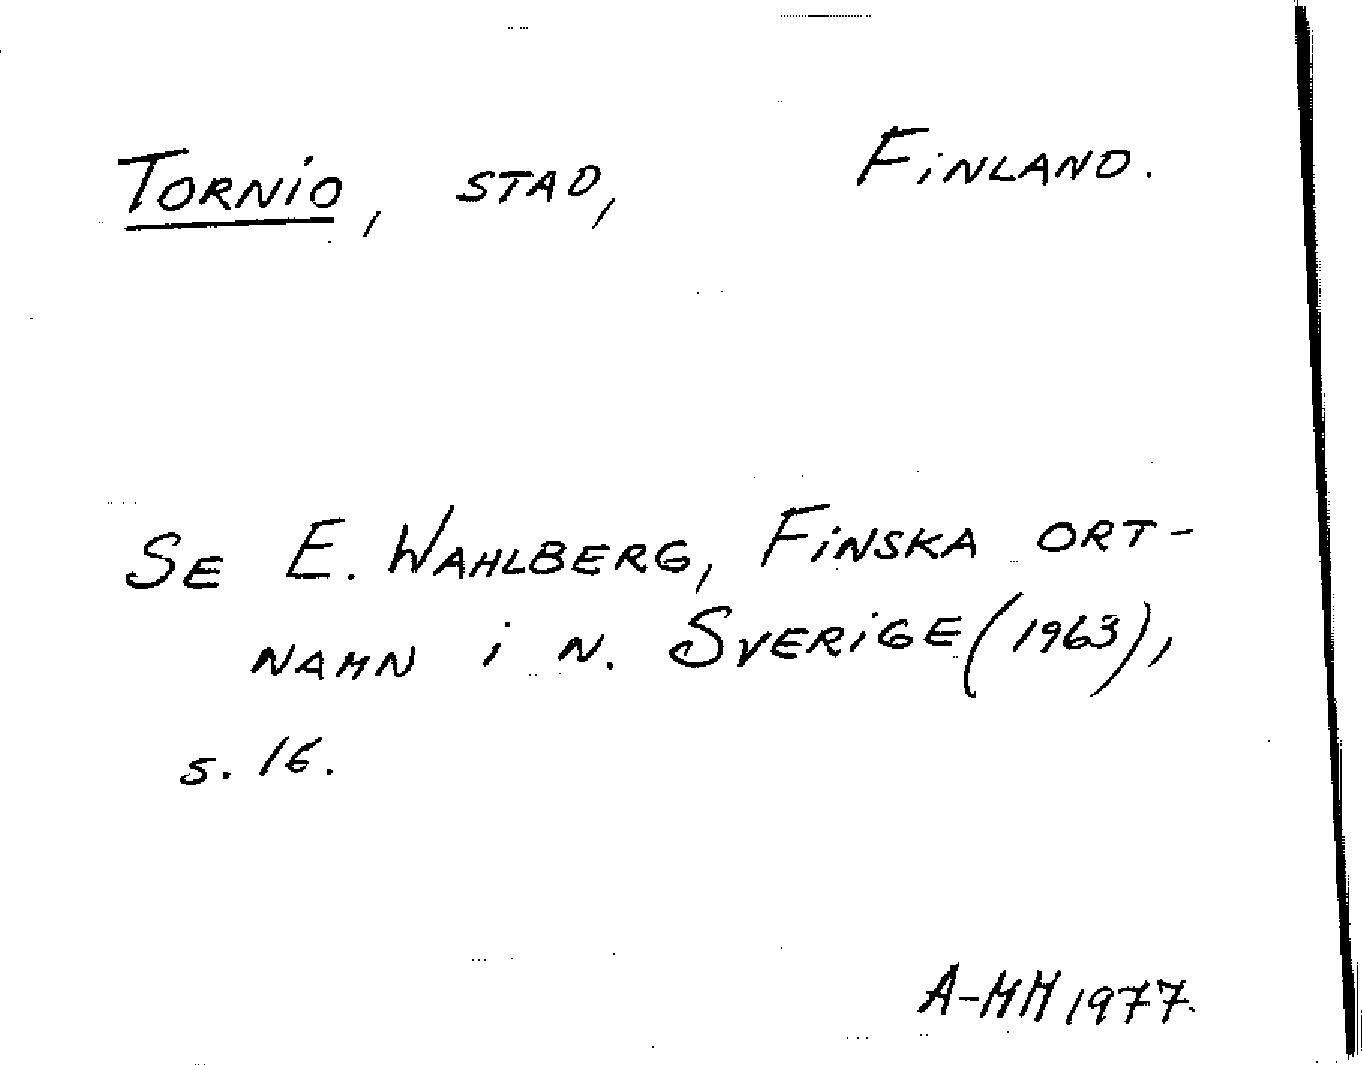 TORNIO, STAD, FINLAND.
SE E. WAHLBERG, FINSKA ORT-
NAMN I N. SVERIGE (1963),
S. 16.
A-MM 1977.